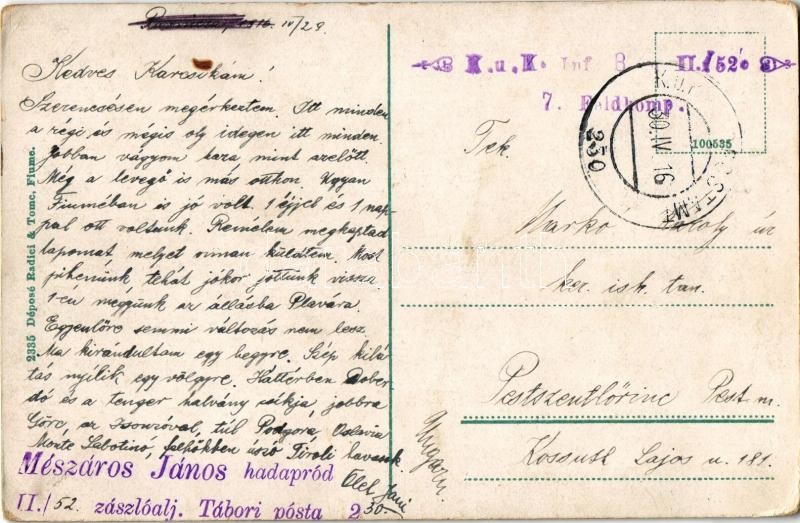 1916. IV/29
Kedves Karcsikám!
Szerencsésen megérkeztem. Itt minden
a régi és mégis oly idegen itt minden.
Jobban vágyom haza mint azelőtt.
Még a levegő is más otthon. Ugyan
Fiuméban is jó volt. 1 éjjel és 1 nap-
pal ott voltunk. Remélem megkaptad
lapomat melyet onnan küldtem. Most
pihenünk tehát jókor jöttünk vissza
1-én megyünk az állásba Plavára.
Egyenlőre semmi változás nem lesz.
Ma kirándultam egy hegyre. Szép kilá-
tás nyílik egy völgyre. Háttérben Dober
dó és a tenger halvány síkja, jobbra
Görc, az Isonzóval, túl Podgora, Oslavia
Monte Sabotinó, felhőkben úszó Tiroli havasok
Ölel Jani
Mészáros János hadapród
II./52. zászlóalj. Tábori pósta 250.
2335 Déposé Radici & Tomc, Fiume.
K.u.K. Inf. R. II./52
7. Feldkomp.
K.u.K.
30.IV.16
250
100535
Tek.
Markó Károly úr
ker. isk. tan.
Pestszentlőrinc Pest m.
Kossuth Lajos u. 181.
Ungarn